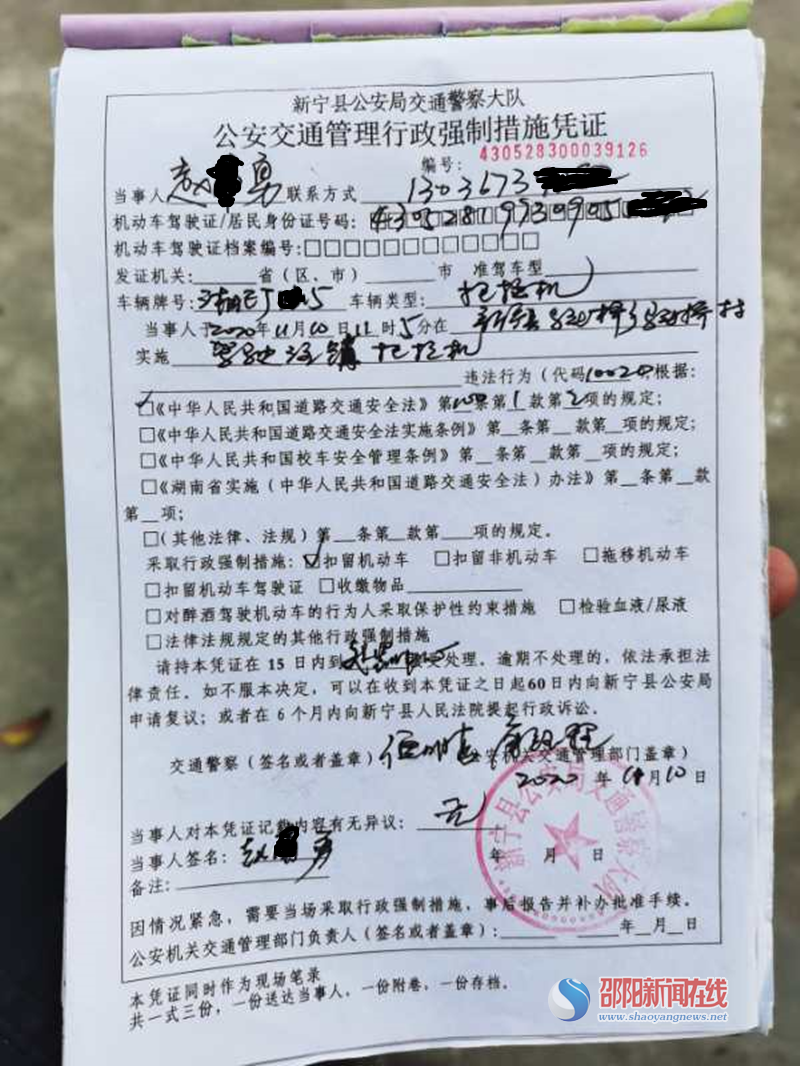 新宁县公安局交通警察大队
公安交通管理行政强制措施凭证
编号：430528300039126
当事人 赵 勇 联系方式 1303673
机动车驾驶证/居民身份证号码：43052819730905
机动车驾驶证档案编号：□□□□□□□□□□□□
发证机关：____省（区、市）____市 准驾车型
车辆牌号： 5 车辆类型：挖掘机
当事人于2020年11月10日11时5分在
实施 挖掘机
违法行为（代码1002 根据：
☑《中华人民共和国道路交通安全法》第 条第1款第2项的规定；
□《中华人民共和国道路交通安全法实施条例》第__条第__款第__项的规定；
□《中华人民共和国校车安全管理条例》第__条第__款第__项的规定；
□《湖南省实施（中华人民共和国道路交通安全法）办法》第__条第__款
第__项；
□（其他法律、法规）第__条第__款第__项的规定。
采取行政强制措施：☑扣留机动车 □扣留非机动车 □拖移机动车
□扣留机动车驾驶证 □收缴物品
□对醉酒驾驶机动车的行为人采取保护性约束措施 □检验血液/尿液
□法律法规规定的其他行政强制措施
请持本凭证在15日内到 接受处理。逾期不处理的，依法承担法
律责任。如不服本决定，可以在收到本凭证之日起60日内向新宁县公安局
申请复议；或者在6个月内向新宁县人民法院提起行政诉讼。
交通警察（签名或者盖章） 公安机关交通管理部门盖章）
2020年11月10日
当事人对本凭证记载内容有无异议：无
当事人签名：赵 勇 年 月 日
备注：
新宁县公安局交通警察大队
因情况紧急，需要当场采取行政强制措施，事后报告并补办批准手续。
公安机关交通管理部门负责人（签名或者盖章）：____ ____年__月__日
本凭证同时作为现场笔录
共一式三份，一份送达当事人，一份附卷，一份存档。
邵阳新闻在线
www.shaoyangnews.net